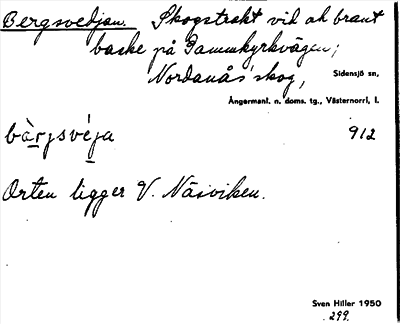 Bergsvedjan. Skogstrakt vid ak brant
backe på Gammkyrkvägen;
Nordanås' skog, Sidensjö sn,
Ångermanl. n. doms. tg., Västernorrl. l.
bàrjsvéja 912
Orten ligger V. Näsviken.
Sven Hiller 1950
299.